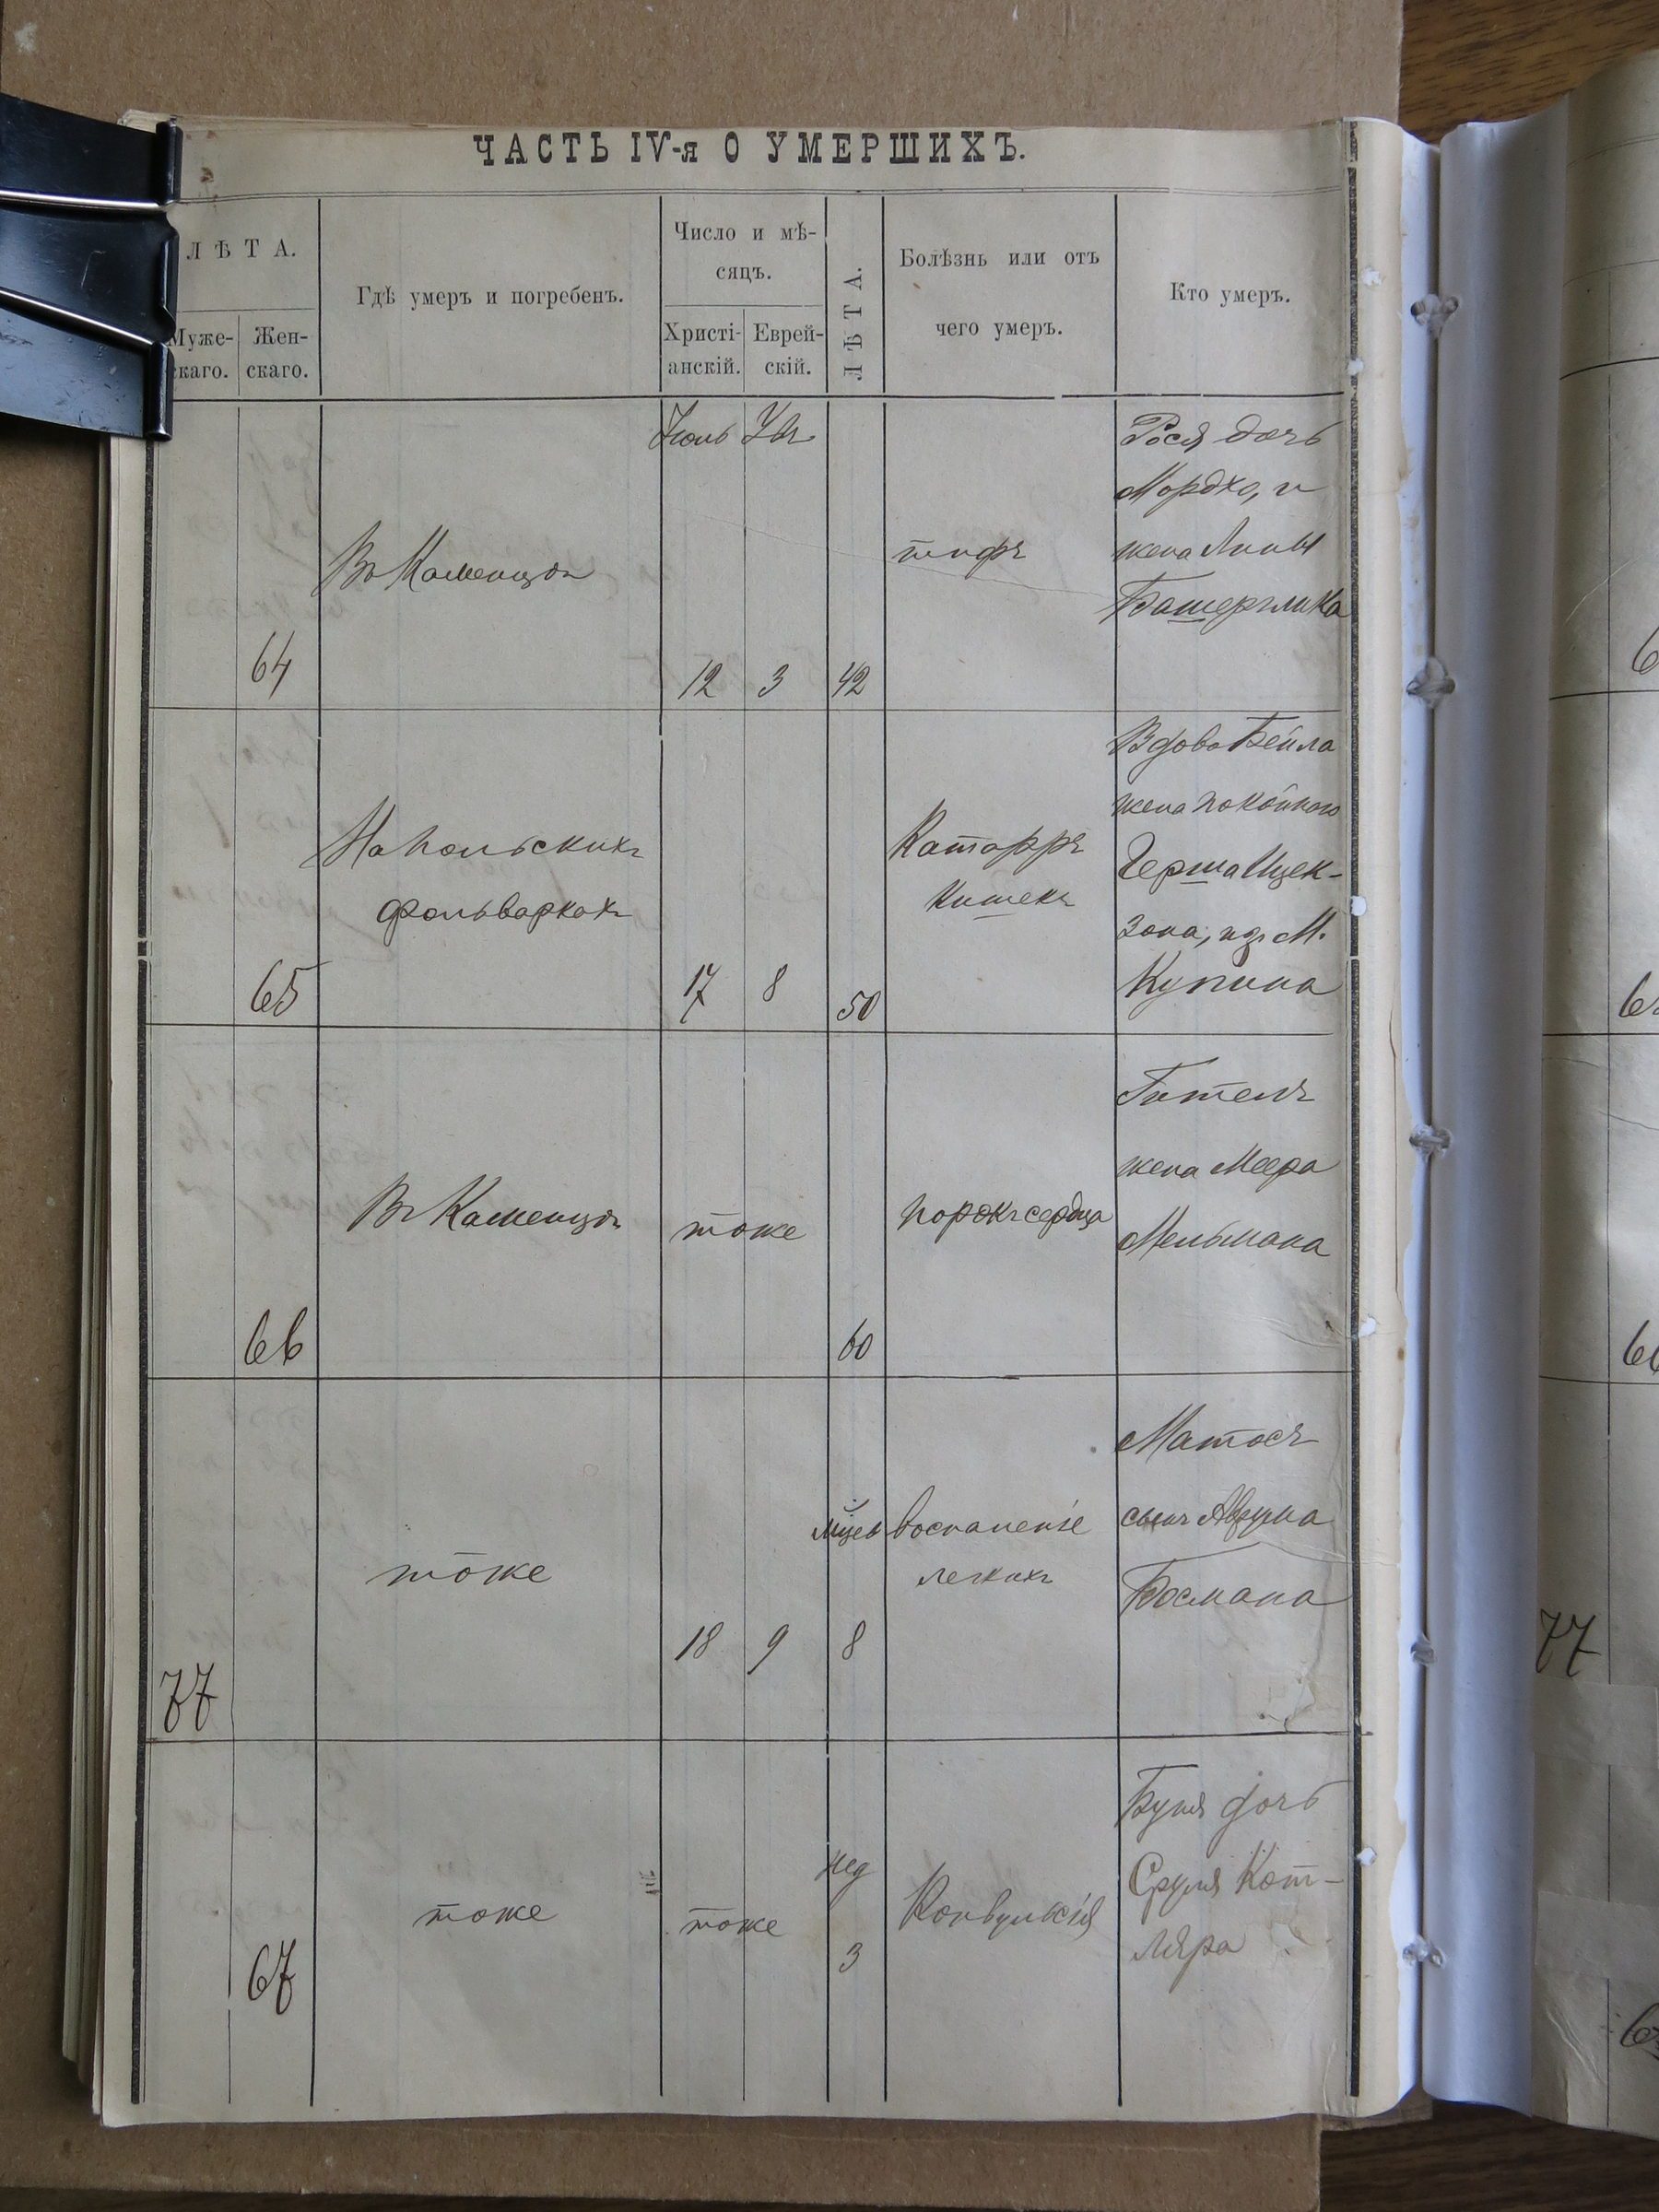 ЧАСТЬ IV-я О УМЕРШИХЪ.
ЛѢТА.
Муже-
скаго.
Жен-
скаго.
Гдѣ умеръ и погребенъ.
Число и мѣ-
сяцъ.
Христі-
анскій.
Еврей-
скій.
ЛѢТА.
Болѣзнь или отъ
чего умеръ.
Кто умеръ.
64
Въ Каменцѣ
Іюнь
12
3
42
тифъ
Рося дочь
Мордко, и
жена Липы
65
На польскихъ
фольваркахъ
17
8
50
Катарръ
кишекъ
Вдова Бейла
жена покойного
Герша Ицек-
зона, изъ М.
Купина
66
Въ Каменцѣ
тоже
60
порокъ сердца
Гителъ
жена Меера
Мельмана
77
тоже
18
9
8
воспаленіе
легкихъ
Матосъ
сынъ Аврума
Босмана
67
тоже
тоже
нед
3
Конвульсія
Буня дочь
Сруля Кот-
ляра
77